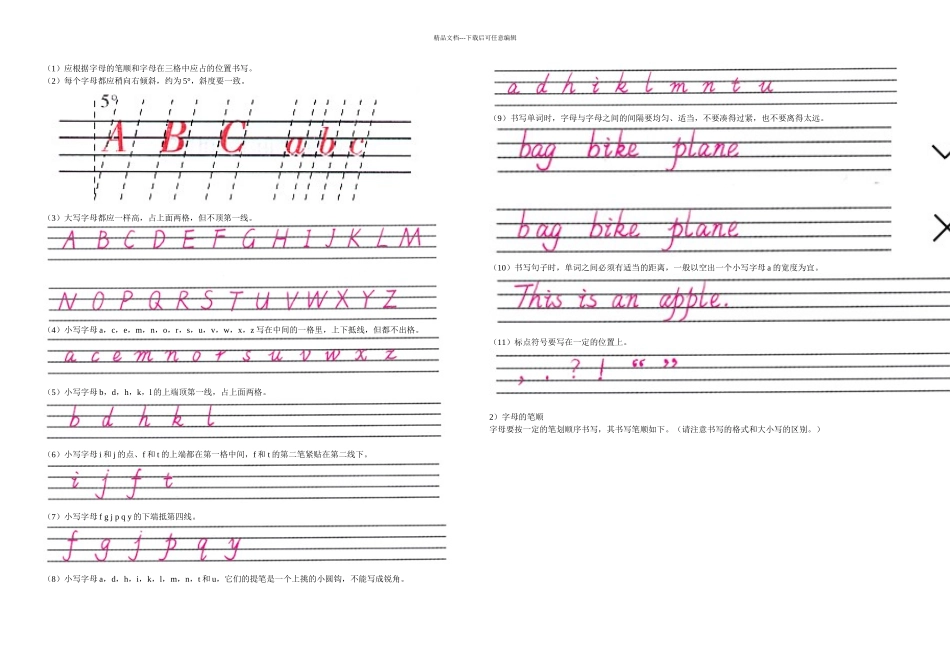 精品文档---下载后可任意编辑
（1）应根据字母的笔顺和字母在三格中应占的位置书写。
（2）每个字母都应稍向右倾斜，约为 5°，斜度要一致。
5°
A B C a b c
（3）大写字母都应一样高，占上面两格，但不顶第一线。
A B C D E F G H I J K L M
N O P Q R S T U V W X Y Z
（4）小写字母 a，c，e，m，n，o，r，s，u，v，w，x，z 写在中间的一格里，上下抵线，但都不出格。
a c e m n o r s u v w x z
（5）小写字母 b，d，h，k，l 的上端顶第一线，占上面两格。
b d h k l
（6）小写字母 i 和 j 的点、f 和 t 的上端都在第一格中间，f 和 t 的第二笔紧贴在第二线下。
i j f t
（7）小写字母 f g j p q y 的下端抵第四线。
f g j p q y
（8）小写字母 a，d，h，i，k，l，m，n，t 和 u，它们的提笔是一个上挑的小圆钩，不能写成锐角。
a d h i k l m n t u
（9）书写单词时，字母与字母之间的间隔要均匀、适当，不要凑得过紧，也不要离得太远。
bag bike plane
bag bike plane
（10）书写句子时，单词之间必须有适当的距离，一般以空出一个小写字母 a 的宽度为宜。
This is an apple.
（11）标点符号要写在一定的位置上。
, . ? ! “ ”
2）字母的笔顺
字母要按一定的笔划顺序书写，其书写笔顺如下。（请注意书写的格式和大小写的区别。）